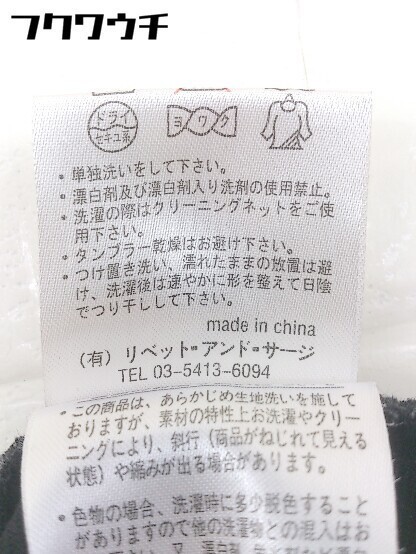 フクワウチ
ドライ
セキユ系
ヨワク
・単独洗いをして下さい。
・漂白剤及び漂白剤入り洗剤の使用禁止。
・洗濯の際はクリーニングネットをご使
用下さい。
・タンブラー乾燥はお避け下さい。
・つけ置き洗い、濡れたままの放置は避
け、洗濯後は速やかに形を整えて日陰
でつり干しして下さい。
made in china
(有) リベット・アンド・サージ
TEL 03-5413-6094
・この商品は、あらかじめ生地洗いを施して
おりますが、素材の特性上お洗濯やクリー
ニングにより、斜行（商品がねじれて見える
状態）や縮みが出る場合があります。
・色物の場合、洗濯時に多少脱色すること
がありますので他の洗濯物との混入はお